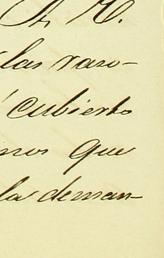 A. M.
las razo-
cubierto
nos que
la deman-